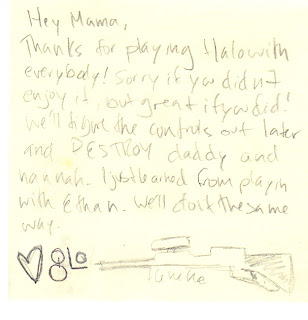 Hey Mama,
Thanks for playing Halo with
everybody! Sorry if you didn't
enjoy it, but great if you did!
We'll figure the controls out later
and DESTROY daddy and
hannah. I just learned from playin
with Ethan. We'll do it the same
way.